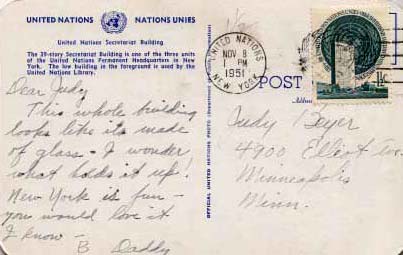 UNITED NATIONS NATIONS UNIES
United Nations Secretariat Building
The 39-story Secretariat Building is one of the three units
of the United Nations Permanent Headquarters in New
York. The low building in the foreground is used by the
United Nations Library.
Dear Judy
This whole building
looks like its made
of glass. I wonder
what holds it up!
New York is fun -
you would love it
I know -
B Daddy
OFFICIAL UNITED NATIONS PHOTO
UNITED NATIONS
NOV 8
1 PM
1951
NEW YORK
1½c
POST
Address
Judy Beyer
4900 Elliot Ave.
Minneapolis
Minn.